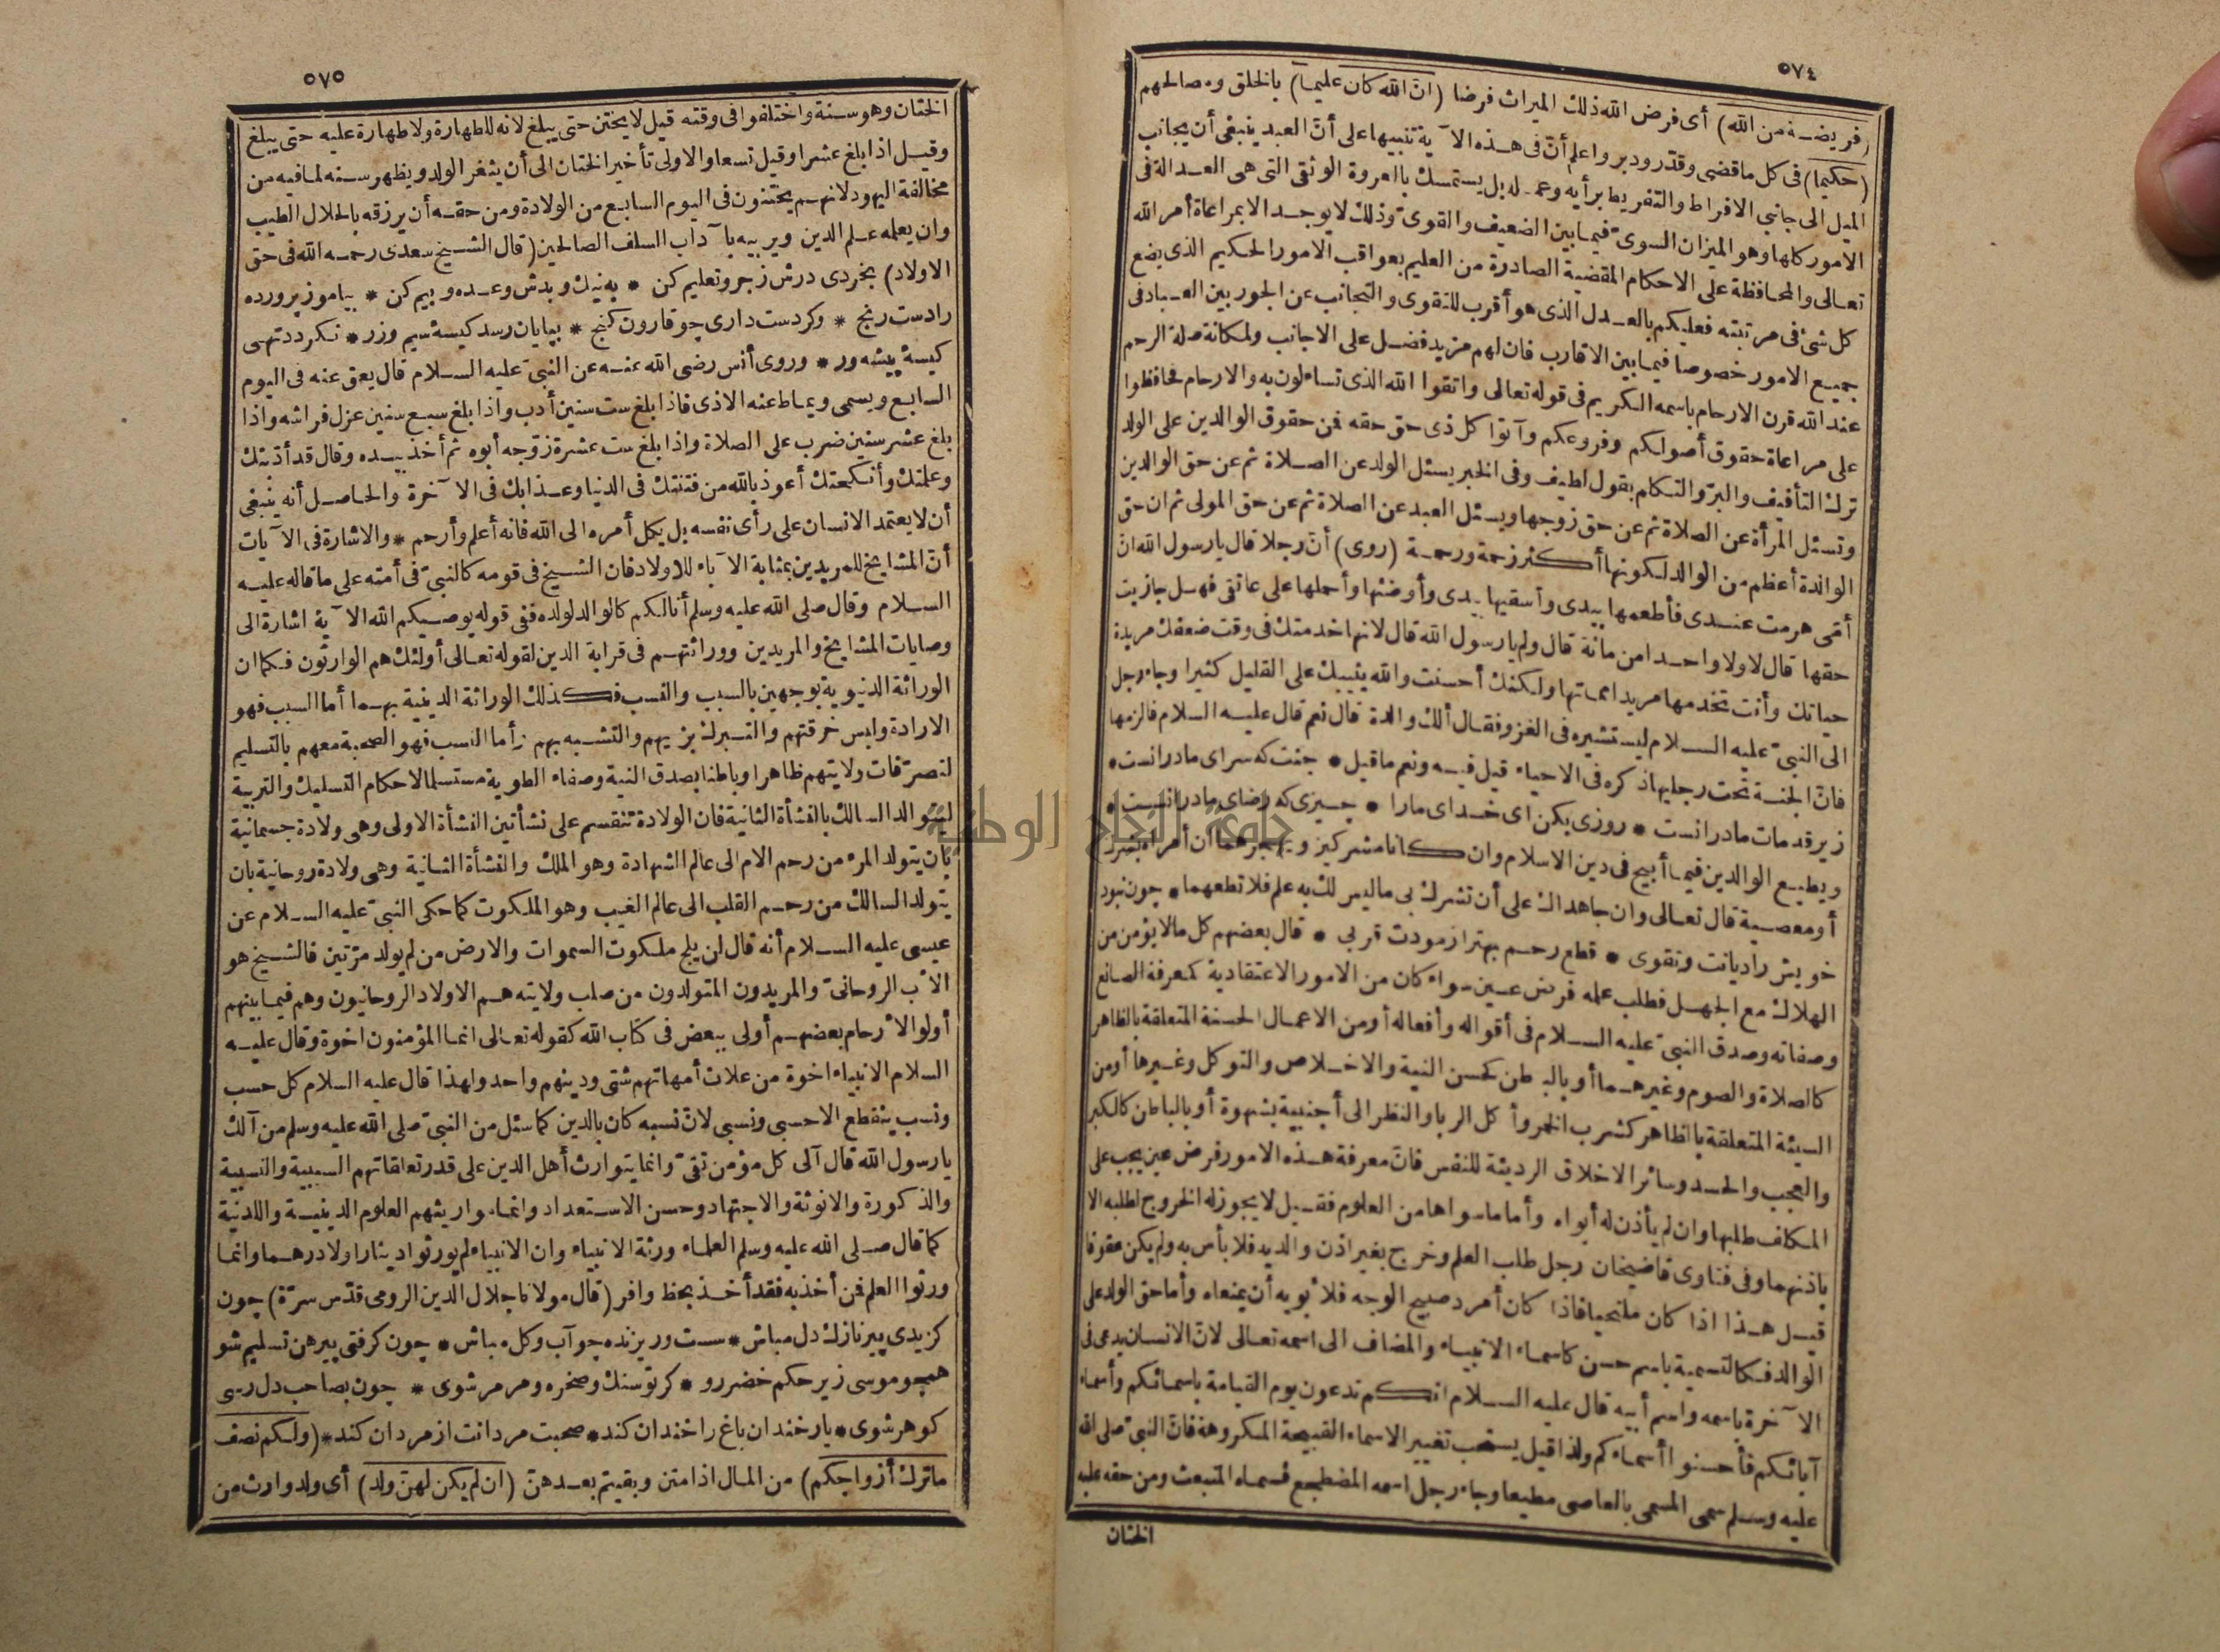 ٥٧٤
(فريضة من الله) أى فرض الله ذلك الميراث فرضا (ان الله كان عليما) بالخلق ومصالحهم
(حكيما) فى كل ما قضى وقدّر ودبر واعلم أنّ فى هذه الآية تنبيها على أنّ العبد ينبغى أن يجانب
الميل الى جانبى الافراط والتفريط برأيه وعمله بل يستمسك بالعروة الوثقى التى هى العدالة فى
الامور كلها وهو الميزان السوىّ فيما بين الضعيف والقوىّ وذلك لا يوجد الا بمراعاة أمر الله
تعالى والمحافظة على الاحكام المقضية الصادرة من العليم بعواقب الامور الحكيم الذى يضع
كل شئ فى مرتبته فعليكم بالعدل الذى هو أقرب للتقوى والتجانب عن الجور بين العباد فى
جميع الامور خصوصا فيما بين الاقارب فان لهم مزيد فضل على الاجانب ولمكانة صلة الرحم
عند الله قرن الارحام باسمه الكريم فى قوله تعالى واتقوا الله الذى تساءلون به والارحام فحافظوا
على مراعاة حقوق أصولكم وفروعكم وآتوا كل ذى حق حقه فمن حقوق الوالدين على الولد
ترك التأفيف والبرّ والتكلم بقول لطيف وفى الخبر يسئل الولد عن الصلاة ثم عن حق الوالدين
وتسئل المرأة عن الصلاة ثم عن حق زوجها ويسئل العبد عن الصلاة ثم عن حق المولى ثم ان حق
الوالدة أعظم من الوالد لكونها أكثر زحمة ورحمة (روى) أنّ رجلا قال يا رسول الله انّ
أمّى هرمت عندى فأطعمها بيدى وأسقيها بيدى وأوضئها وأحملها على عاتقى فهل جازيت
حقها قال لا ولا واحدا من مائة قال ولم يا رسول الله قال لانها خدمتك فى وقت ضعفك مريدة
حياتك وأنت تخدمها مريدا مماتها ولكنك أحسنت والله يثيبك على القليل كثيرا وجاء رجل
الى النبىّ عليه السلام ليستشيره فى الغزو فقال ألك والدة قال نعم قال عليه السلام فالزمها
فانّ الجنة تحت رجليها ذكره فى الاحياء قيل فيه ونعم ما قيل * جنت كه سراى مادرانست *
زير قدمات مادرانست * روزى بكن اى خداى مارا * چيزى كه رضاى مادرانست *
ويطيع الوالدين فيما أبيح فى دين الاسلام وان كانا مشركين ويهجرهما ان أمراه بشرك
أو معصية قال تعالى وان جاهداك على أن تشرك بى ما ليس لك به علم فلا تطعهما * چون نبود
خويش را ديانت وتقوى * قطع رحم بهتر از مودت قربى * قال بعضهم كل ما لا يؤمن من
الهلاك مع الجهل فطلب علمه فرض عين سواء كان من الامور الاعتقادية كمعرفة الصانع
وصفاته وصدق النبىّ عليه السلام فى أقواله وأفعاله أو من الاعمال الحسنة المتعلقة بالظاهر
كالصلاة والصوم وغيرهما أو بالباطن كحسن النية والاخلاص والتوكل وغيرها أو من
السيئة المتعلقة بالظاهر كشرب الخمر وأكل الربا والنظر الى أجنبية بشهوة أو بالباطن كالكبر
والعجب والحسد وسائر الاخلاق الرديئة للنفس فانّ معرفة هذه الامور فرض عين يجب على
المكلف طلبها وان لم يأذن له أبواه وأما ما سواها من العلوم فقيل لا يجوز له الخروج لطلبه الا
باذنهما وفى فتاوى قاضيخان رجل طلب العلم وخرج بغير اذن والديه فلا بأس به ولم يكن عقوقا
قيل هذا اذا كان ملتحيا فاذا كان أمرد صبيح الوجه فلأبويه أن يمنعاه وأما حق الولد على
الوالد فكالتسمية باسم حسن كاسماء الانبياء والمضاف الى اسمه تعالى لانّ الانسان يدعى فى
الآخرة باسمه واسم أبيه قال عليه السلام انكم تدعون يوم القيامة باسمائكم وأسماء
آبائكم فأحسنوا أسماءكم ولذا قيل يستحب تغيير الاسماء القبيحة المكروهة فانّ النبىّ صلى الله
عليه وسلم سمى المسمى بالعاصى مطيعا وجاء رجل اسمه المضطجع فسماه المنبعث ومن حقه عليه
الختان
٥٧٥
الختان وهو سنة واختلفوا فى وقته قيل لا يختن حتى يبلغ لانه للطهارة ولا طهارة عليه حتى يبلغ
وقيل اذا بلغ عشرا وقيل تسعا والاولى تأخير الختان الى أن يثغر الولد ويظهر سنه لما فيه من
مخالفة اليهود لانهم يختنون فى اليوم السابع من الولادة ومن حقه أن يرزقه بالحلال الطيب
وان يعلمه علم الدين ويربيه بآداب السلف الصالحين (قال الشيخ سعدى رحمه الله فى حق
الاولاد) بخردى درش زجر وتعليم كن * به نيك وبدش وعده وبيم كن * بياموز پرورده
را دست رنج * وكر دست دارى چو قارون كنج * بپايان رسد كيسه سيم وزر * نكردد تهى
كيسهٔ پيشه ور * وروى أنس رضى الله عنه عن النبىّ عليه السلام قال يعق عنه فى اليوم
السابع ويسمى ويماط عنه الاذى فاذا بلغ ست سنين أدب واذا بلغ سبع سنين عزل فراشه واذا
بلغ عشر سنين ضرب على الصلاة واذا بلغ ست عشرة زوّجه أبوه ثم أخذ بيده وقال قد أدّبتك
وعلمتك وأنكحتك أعوذ بالله من فتنتك فى الدنيا وعذابك فى الآخرة والحاصل أنه ينبغى
أن لا يعتمد الانسان على رأى نفسه بل يكل أمره الى الله فانه أعلم وأرحم * والاشارة فى الآيات
أنّ المشايخ للمريدين بمثابة الآباء للاولاد فان الشيخ فى قومه كالنبىّ فى أمته على ما قاله عليه
السلام وقال صلى الله عليه وسلم أنا لكم كالوالد لولده ففى قوله يوصيكم الله الآية اشارة الى
وصايات المشايخ والمريدين ووراثتهم فى قرابة الدين لقوله تعالى أولئك هم الوارثون فكما ان
الوراثة الدنيوية بوجهين بالسبب والنسب فكذلك الوراثة الدينية بهما أما السبب فهو
الارادة ولبس خرقتهم والتبرك بزيهم والتشبه بهم وأما النسب فهو الصحبة معهم بالتسليم
لتصرّفات ولايتهم ظاهرا وباطنا بصدق النية وصفاء الطوية مستسلما لاحكام التسليك والتربية
ليتوالد السالك بالنشأة الثانية فان الولادة تنقسم على نشأتين النشأة الاولى وهى ولادة جسمانية
بأن يتولد المرء من رحم الام الى عالم الشهادة وهو الملك والنشأة الثانية وهى ولادة روحانية بان
يتولد السالك من رحم القلب الى عالم الغيب وهو الملكوت كما حكى النبىّ عليه السلام عن
عيسى عليه السلام أنه قال لن يلج ملكوت السموات والارض من لم يولد مرّتين فالشيخ هو
الأب الروحانىّ والمريدون المتولدون من صلب ولايته هم الاولاد الروحانيون وهم فيما بينهم
أولو الأرحام بعضهم أولى ببعض فى كتاب الله كقوله تعالى انما المؤمنون اخوة وقال عليه
السلام الانبياء اخوة من علات أمهاتهم شتى ودينهم واحد ولهذا قال عليه السلام كل حسب
ونسب ينقطع الا حسبى ونسبى لانّ نسبه كان بالدين كما سئل من النبىّ صلى الله عليه وسلم من آلك
يا رسول الله قال آلى كل مؤمن تقىّ وانما يتوارث أهل الدين على قدر تعلقاتهم السببية والنسبية
والذكورة والانوثة والاجتهاد وحسن الاستعداد وانما مواريثهم العلوم الدينية واللدنية
كما قال صلى الله عليه وسلم العلماء ورثة الانبياء وان الانبياء لم يورثوا دينارا ولا درهما وانما
ورثوا العلم فمن أخذ به فقد أخذ بحظ وافر (قال مولانا جلال الدين الرومى قدّس سرّه) چون
كزيدى پير نازك دل مباش * سست وريزنده چو آب وكل مباش * چون كرفتى پير هن تسليم شو
همچو موسى زير حكم خضر رو * كر تو سنك وصخره ومرمر شوى * چون بصاحب دل رسى
كوهر شوى * يار خندان باغ را خندان كند * صحبت مردانت از مردان كند * (ولكم نصف
ما ترك أزواجكم) من المال اذا متن وبقيتم بعدهنّ (ان لم يكن لهنّ ولد) أى ولد وارث من
جامعة النجاح الوطنية